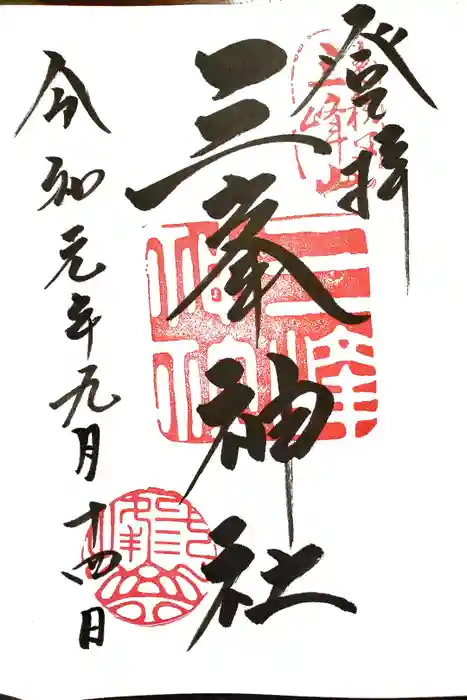 登拝
三峯神社
令和元年九月十四日
三峯
神社